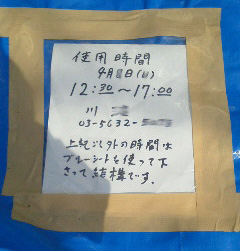 使用時間
9月 日( )
12:30〜17:00
川
03-5632-
上記以外の時間は
ブルーシートを使って下
さって結構です。